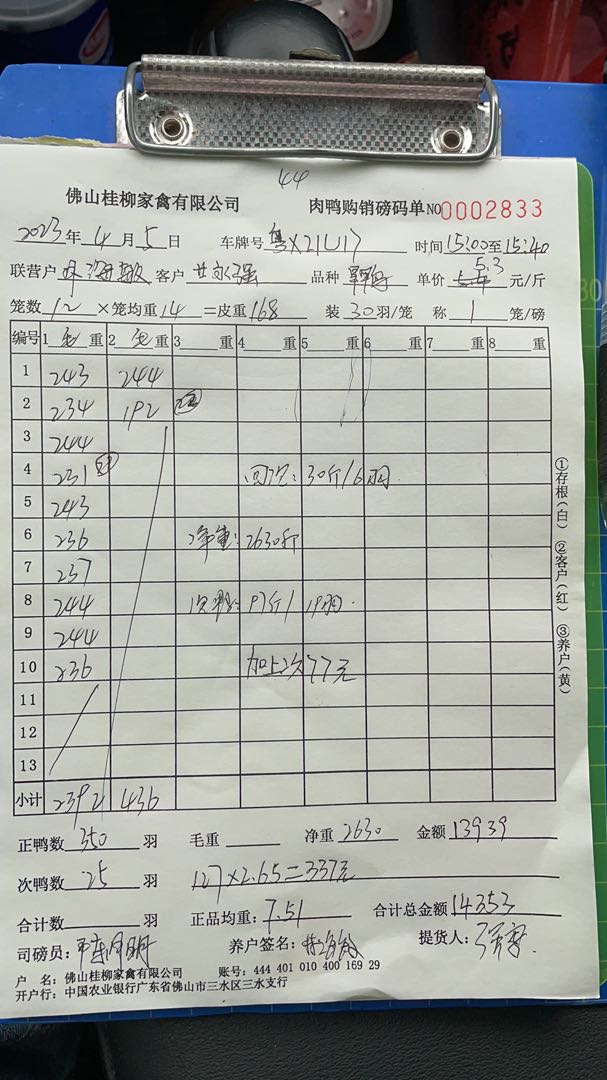 44
佛山桂柳家禽有限公司 肉鸭购销磅码单 NO 0002833
2023年4月5日 车牌号 粤X21U17 时间 15:00至15:40
联营户 客户 甘永强 品种 单价 5.3 元/斤
笼数 12 ×笼均重 14 =皮重 168 装 30 羽/笼 称 1 笼/磅
编号 1 毛重 2 毛重 3 重 4 重 5 重 6 重 7 重 8 重
1 243 244
2 234 192 22
3 244
4 231 回次:30斤/6羽
5 243
6 236 净重:2630斤
7 237
8 244 次鸭:97斤/19羽.
9 244
10 236 加上次77元
11
12
13
小计 2392 436
①存根(白) ②客户(红) ③养户(黄)
正鸭数 350 羽 毛重 净重 2630 金额 13939
次鸭数 25 羽 127×2.65=337元
合计数 羽 正品均重: 7.51 合计总金额 14353
司磅员: 养户签名: 提货人:
户 名: 佛山桂柳家禽有限公司 账号: 444 401 010 400 169 29
开户行: 中国农业银行广东省佛山市三水区三水支行